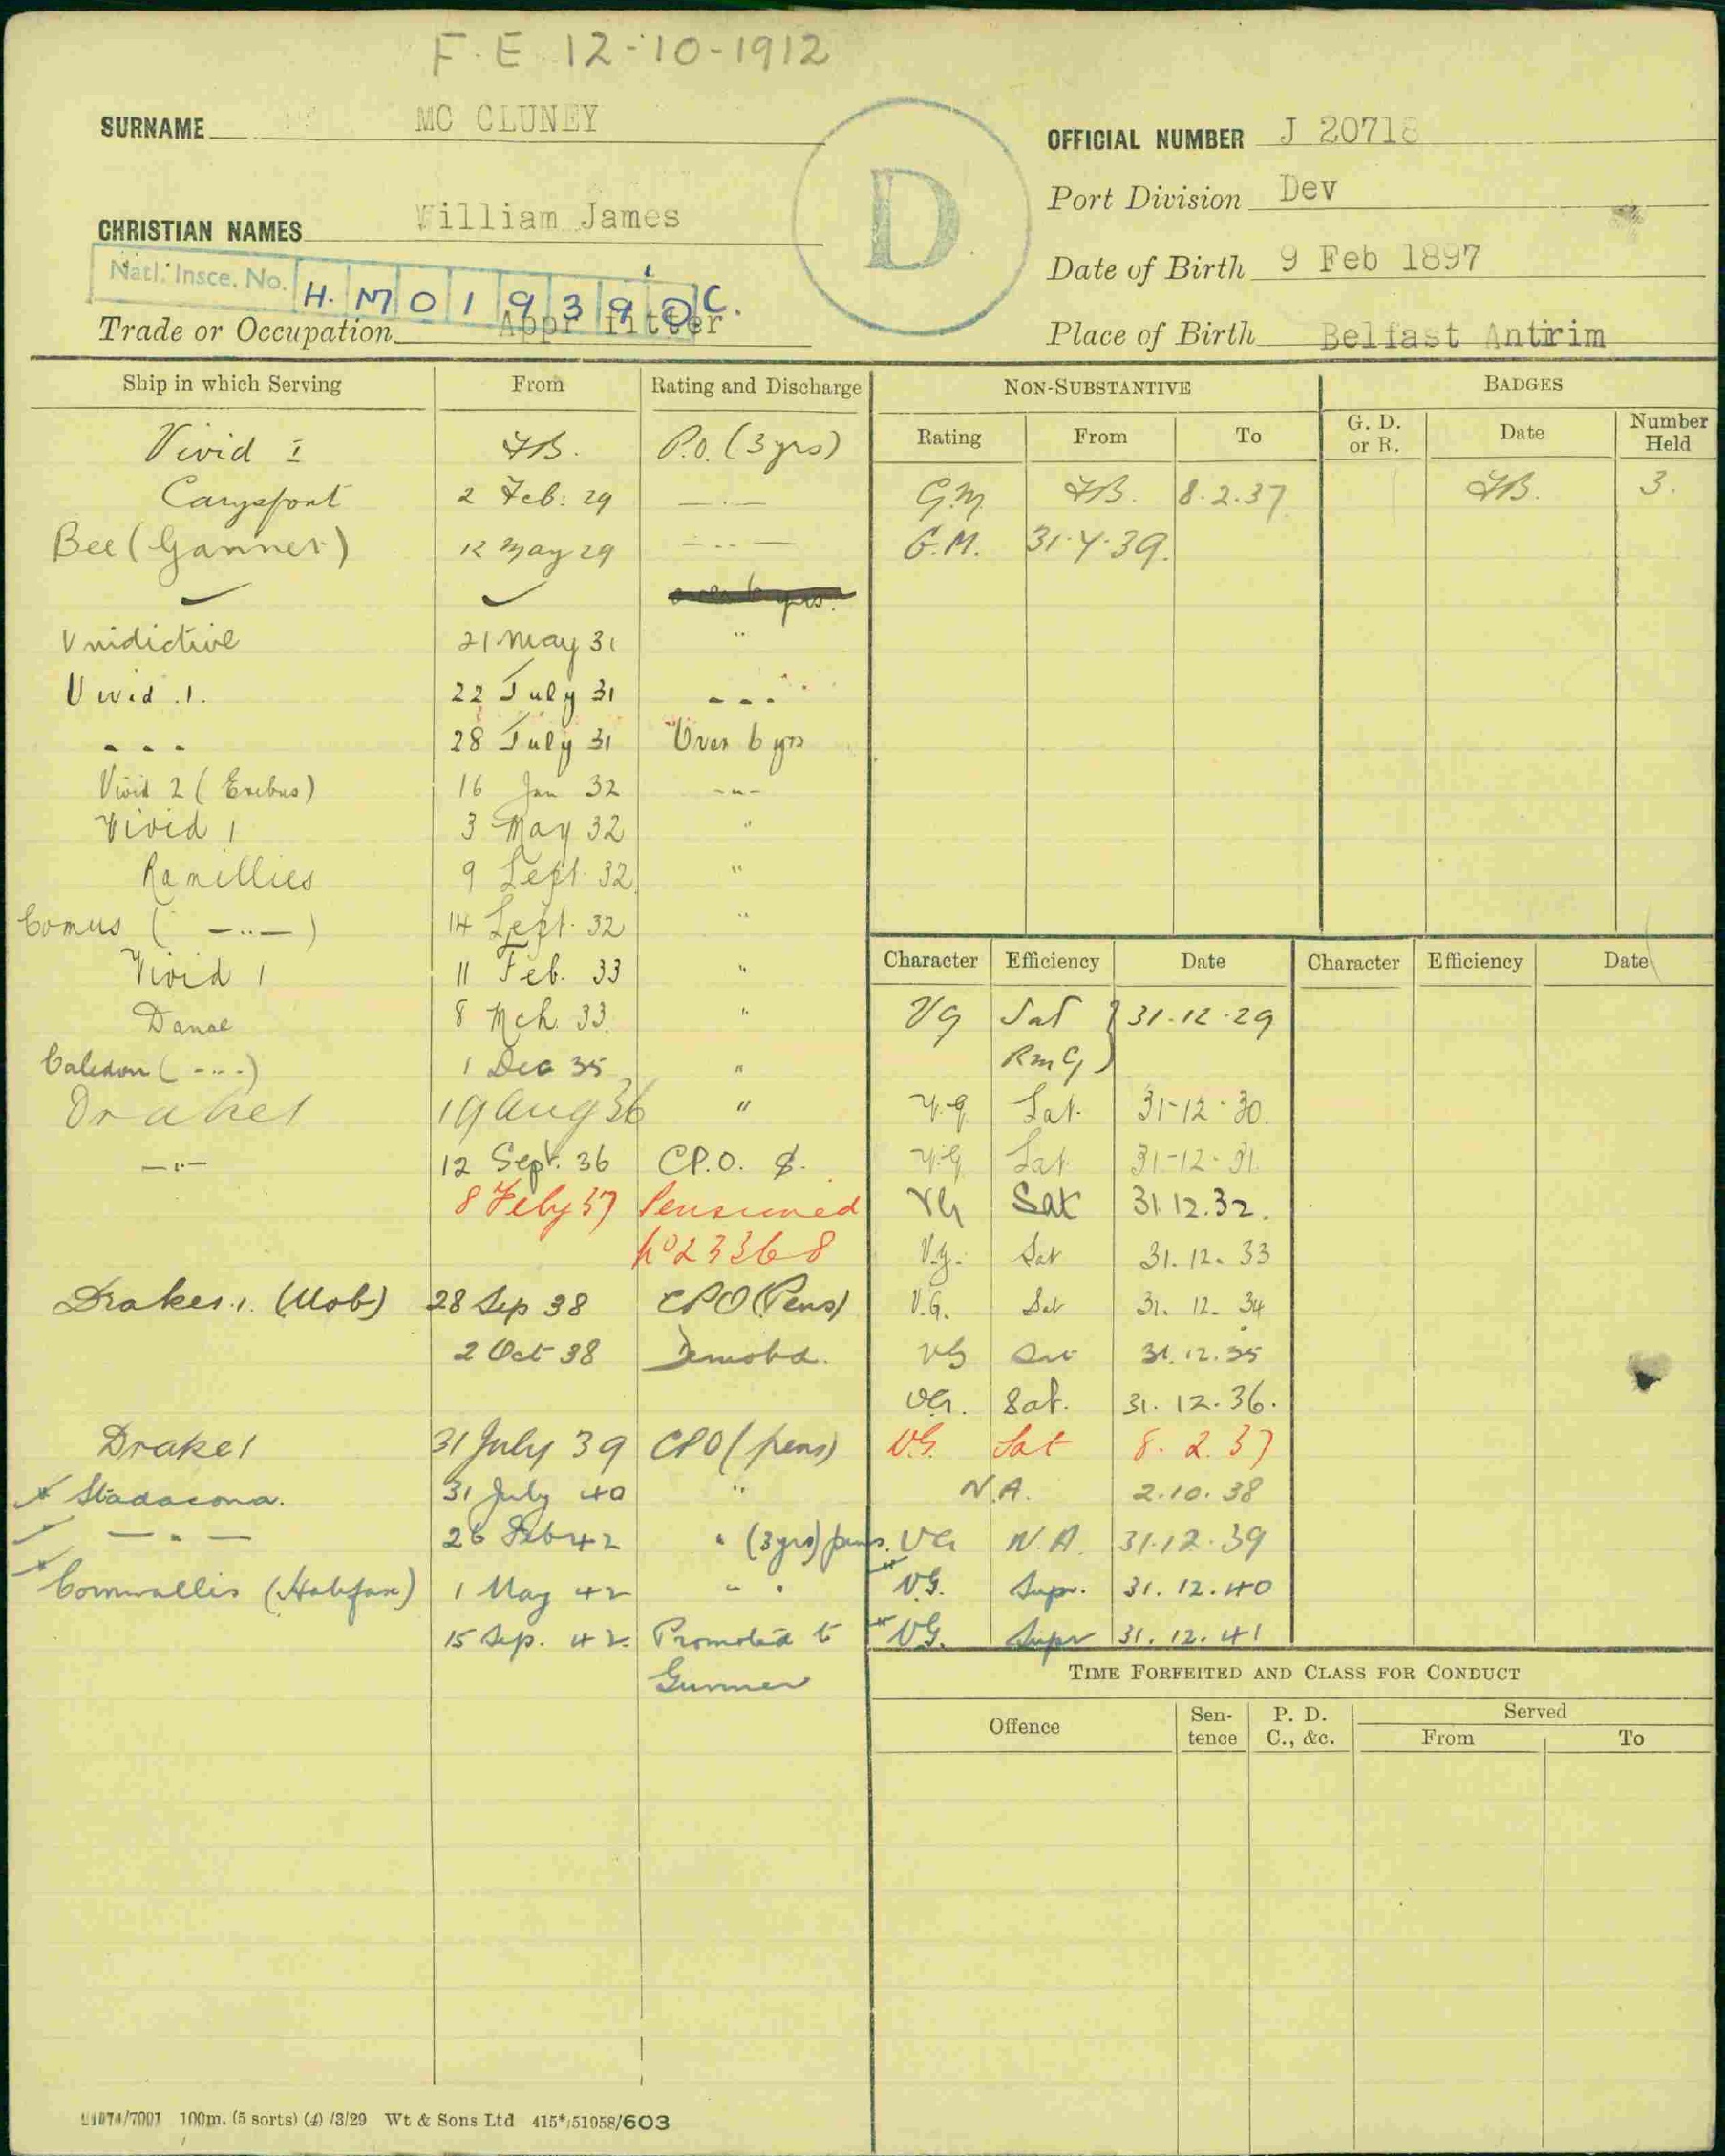 F.E 12-10-1912
SURNAME MC CLUNEY
OFFICIAL NUMBER J 20718
Port Division Dev
CHRISTIAN NAMES William James
D
Date of Birth 9 Feb 1897
Natl. Insce. No. H. M 0 1 9 3 9 0 C.
Trade or Occupation Appr fitter
Place of Birth Belfast Antrim
Ship in which Serving From Rating and Discharge
Vivid I FB. P.O. (3 yrs)
Carysfort 2 Feb: 29 —·—
Bee (Gannet) 12 May 29 —··—
Vnidictive 21 May 31 "
Vivid .1. 22 July 31 - - -
- - - 28 July 31 Over 6 yrs
Vivid 2 (Erebus) 16 Jan 32 -"-
Vivid 1 3 May 32 "
Ramillies 9 Sept. 32 "
Comus ( —··— ) 14 Sept. 32 "
Vivid 1 11 Feb. 33 "
Danae 8 Mch. 33. "
Caledon ( -··- ) 1 Dec 35 "
Drake 1 19 Aug 36 "
—"— 12 Sept. 36 CP.O.
8 Feby 37 Pensioned
No 23368
Drake 1. (Mob) 28 Sep 38 CPO (Pens)
2 Oct 38 Demobd.
Drake 1 31 July 39 CPO (pens)
Stadacona. 31 July 40 "
— " — 26 Feb 42 " (3 yrs) pens.
Cornwallis (Halifax) 1 May 42 " "
15 Sep. 42. Promoted to
Gunner
NON-SUBSTANTIVE
Rating From To
G.M. FB. 8.2.37
G.M. 31.7.39.
BADGES
G. D. or R. Date Number Held
FB. 3.
Character Efficiency Date Character Efficiency Date
VG Sat } 31.12.29
RmG
V.G. Sat. 31-12-30.
V.G. Sat. 31-12-31.
VG Sat 31.12.32.
V.G. Sat 31.12.33
V.G. Sat 31.12.34
VG Sat 31.12.35
VG. Sat. 31.12.36.
VG. Sat 8.2.37
N.A. 2.10.38
VG N.A. 31.12.39
VG. Supr. 31.12.40
VG. Supr 31.12.41
TIME FORFEITED AND CLASS FOR CONDUCT
Offence Sen-tence P. D. C., &c. Served
From To
100m. (5 sorts) (4) /3/29 Wt & Sons Ltd 415*/51058/603